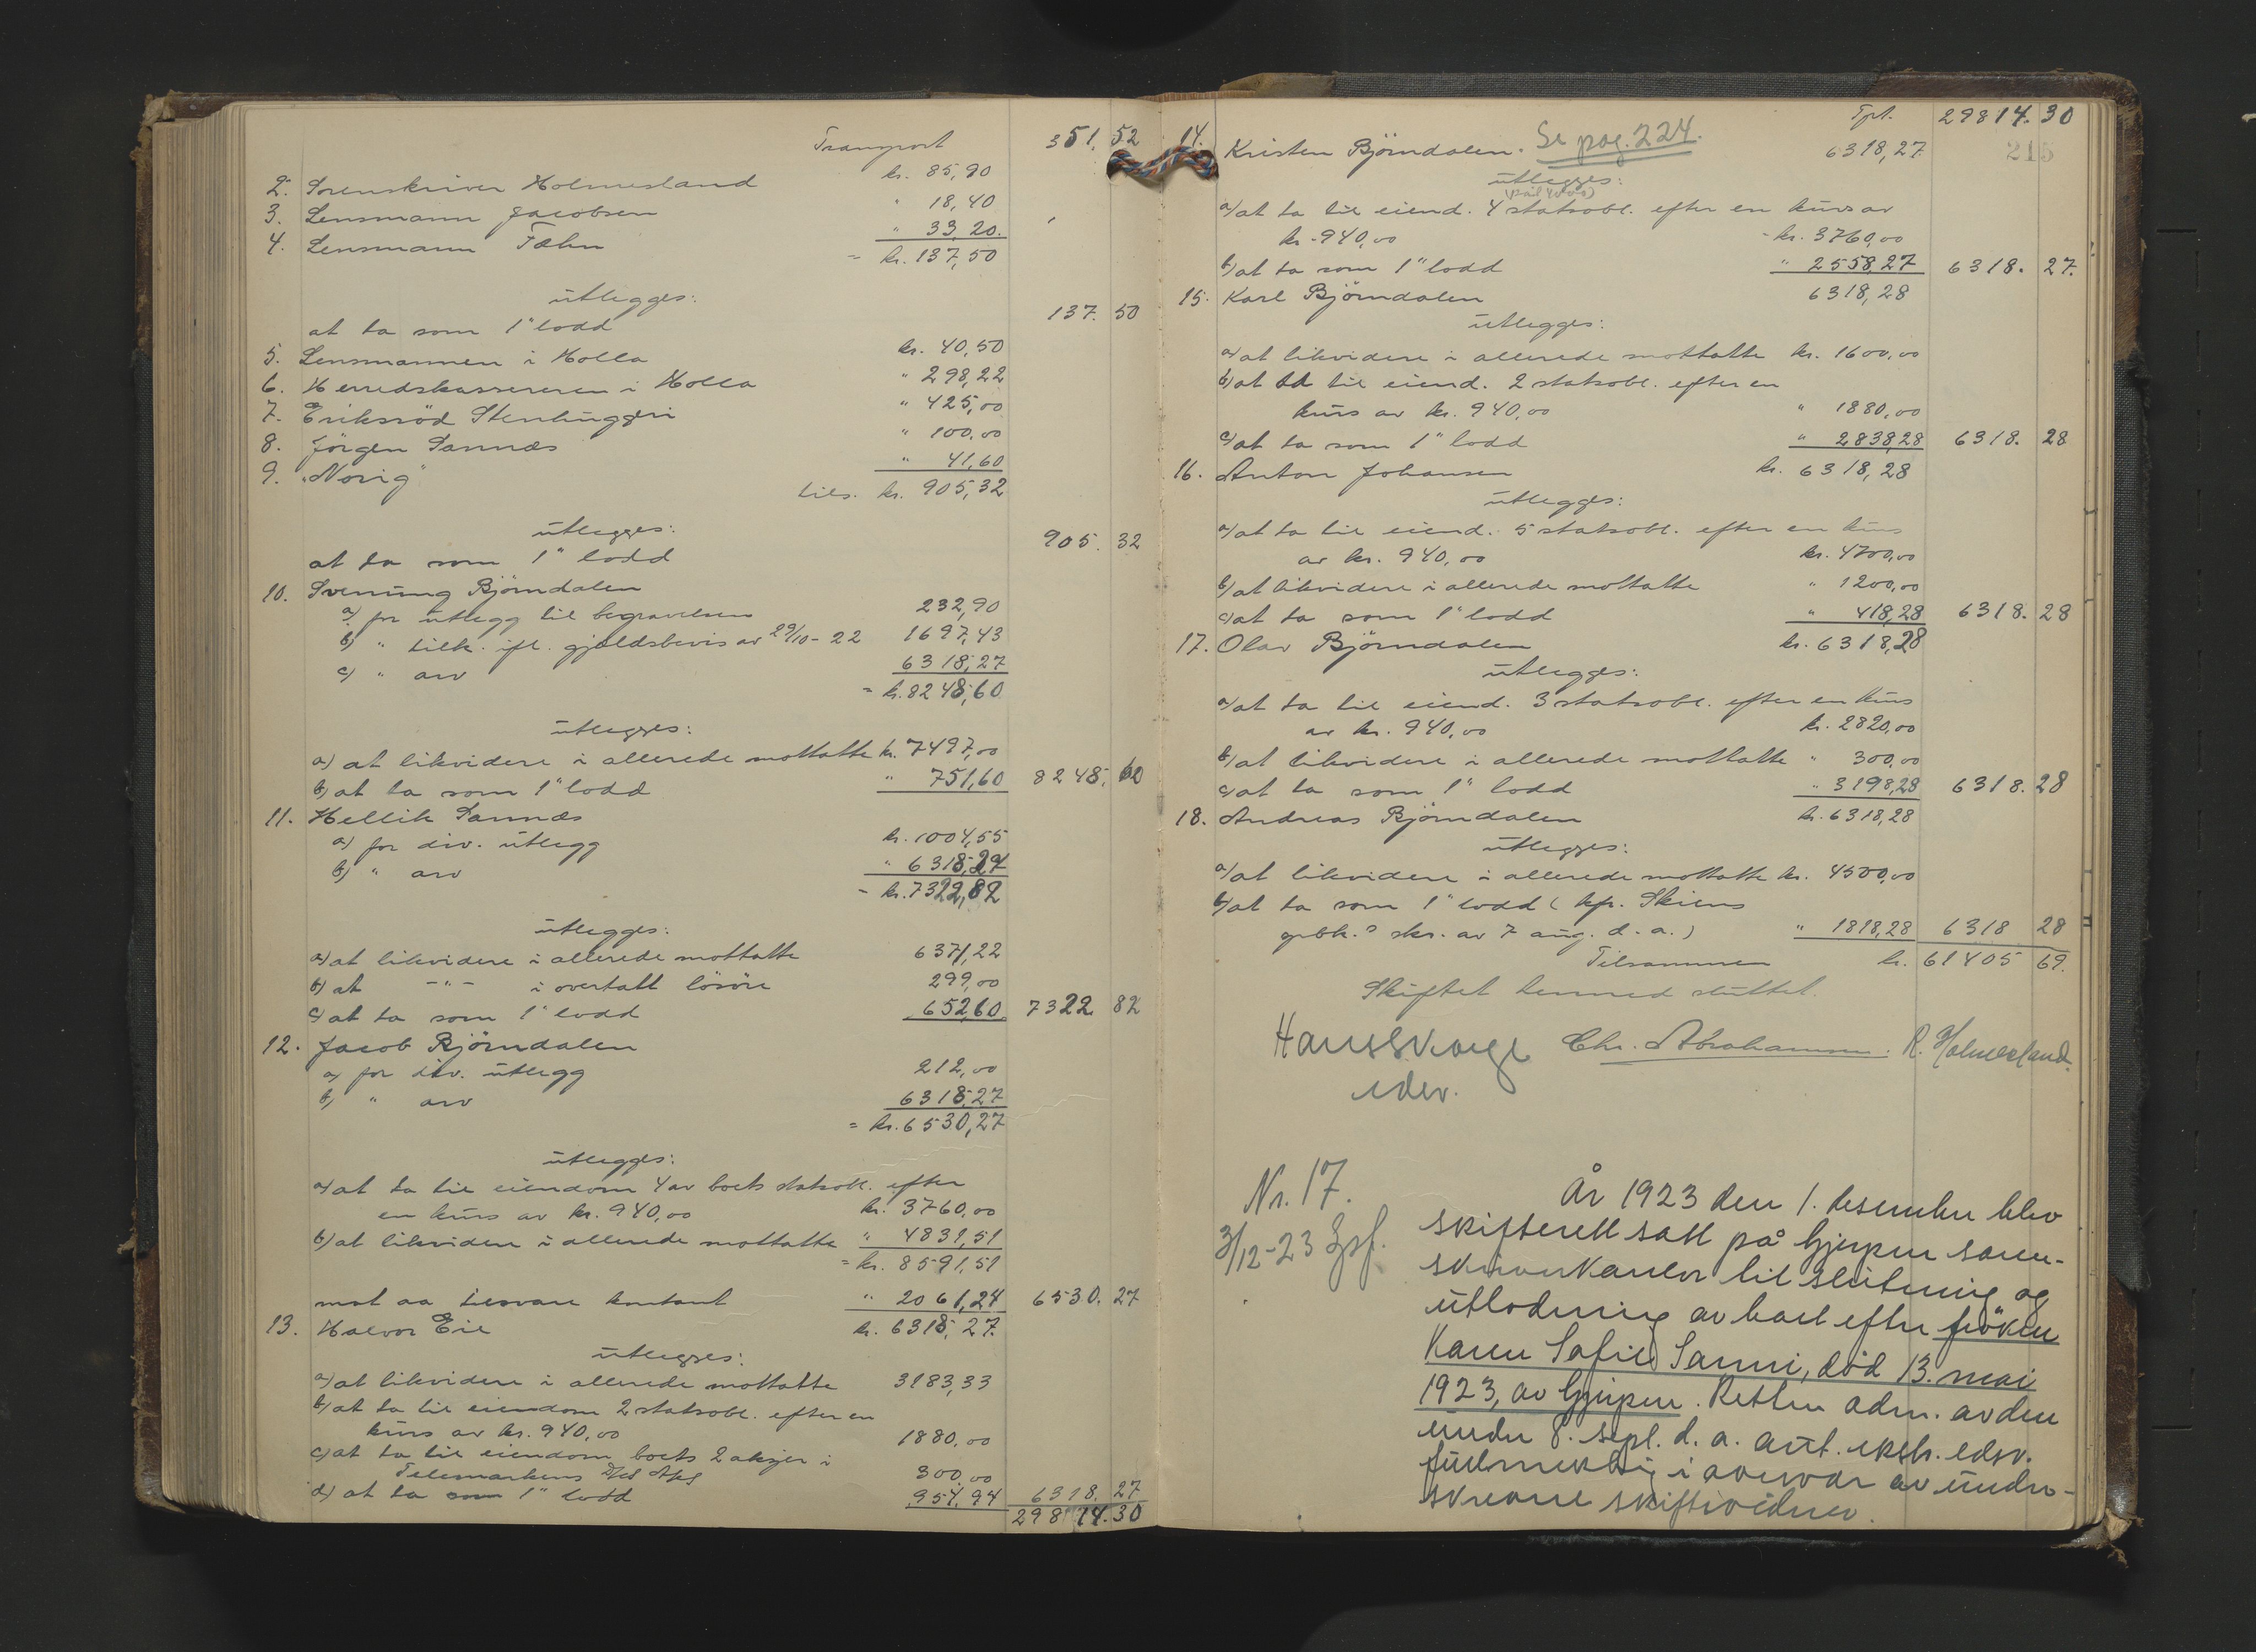 Transport 351. 52
2. Sorenskriver Holmesland kr. 85,90
3. Lensmann Jacobsen " 18,40
4. Lensmann Tæhn " 33,20.
= kr. 137,50
utlegges:
at ta som 1" lodd 137. 50
5. Lensmannen i Holla kr. 40,50
6. Herredskassereren i Holla " 298,22
7. Eriksröd Stenhuggeri " 425,00
8. Jörgen Sannæs " 100,00
9. "Norig" " 41,60
tils. kr. 905,32
utlegges:
at ta som 1" lodd 905. 32
10. Svenung Björndalen
a) for utlegg til begravelsen 232,90
b) " tilk. ifl. gjældsbevis av 29/10-22 1697,43
c) " arv 6318,27
= kr. 8248,60
utlegges:
a) at likvidere i allerede mottatte kr. 7497,00
b) at ta som 1" lodd " 751,60 8248. 60
11. Hellik Sannæs
a) for div. utlegg kr. 1004,55
b) " arv " 6318,27
- kr. 7322,82
utlegges:
a) at likvidere i allerede mottatte 6371,22
b) at -"- i overtatt lösöre 299,00
c) at ta som 1" lodd 652,60 7322. 82
12. Jacob Björndalen
a) for div. utlegg 212,00
b) " arv 6318,27
= kr. 6530,27
utlegges:
a) at ta til eiendom 4 av boets statsobl. efter
en kurs av kr. 940,00 kr. 3760,00
b) at likvidere i allerede mottatte " 4831,51
= kr. 8591,51
mot aa tilsvare kontant " 2061,24 6530. 27
13. Halvor Eie kr. 6318,27.
utlegges:
a) at likvidere i allerede mottatte 3183,33
b) at ta til eiendom 2 statsobl. efter en
kurs av kr. 940,00 1880,00
c) at ta til eiendom boets 2 aksjer i
Telemarkens 300,00
d) at ta som 1" lodd 954,94 6318. 27
29814. 30
Tpt. 29814. 30
215
14. Kristen Björndalen. Se pag. 224. 6318,27
utlegges:
a) at ta til eiend. 4 statsobl. efter en kurs av
kr. 940,00 - kr. 3760,00
b) at ta som 1" lodd " 2558,27 6318. 27.
15. Karl Björndalen 6318,28
utlegges:
a) at likvidere i allerede mottatte kr. 1600,00
b) at ta til eiend. 2 statsobl. efter en
kurs av kr. 940,00 " 1880,00
c) at ta som 1" lodd " 2838,28 6318. 28
16. Anton Johansen kr. 6318,28
utlegges:
a) at ta til eiend. 5 statsobl. efter en kurs
av kr. 940,00 kr. 4700,00
b) at likvidere i allerede mottatte " 1200,00
c) at ta som 1" lodd " 418,28 6318. 28
17. Olav Björndalen kr. 6318,28
utlegges:
a) at ta til eiend. 3 statsobl. efter en kurs
av kr. 940,00 kr. 2820,00
b) at likvidere i allerede mottatte " 300,00
c) at ta som 1" lodd " 3198,28 6318. 28
18. Andreas Björndalen kr. 6318,28
utlegges:
a) at likvidere i allerede mottatte kr. 4500,00
b) at ta som 1" lodd (kfr. Skiens
skr. av 7 aug. d. a.) " 1818,28 6318 28
Tilsammen kr. 61405 69.
Skiftet dermed sluttet.
Chr. Abrahamsen. R. Holmesland.
edsv.
Nr. 17.
3/12-23
År 1923 den 1. desember blev
skifterett satt på Gjerpen soren-
skriverkontor til slutning og
utlodning av boet efter fröken
Karen Sofie Sanni, död 13. mai
1923, av Gjerpen. Retten adm. av den
under 8. sept. d. a. aut. ekstr. edsv.
fullmektig i overvær av under-
skrevne skiftevidner.